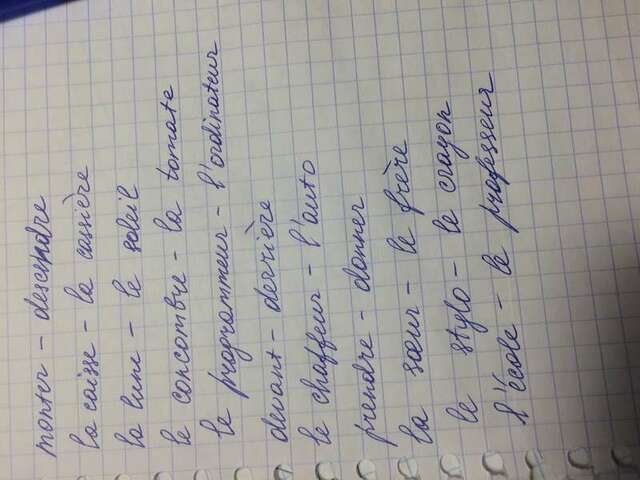 monter - descendre
la caisse - la caissière
la lune - le soleil
le concombre - la tomate
le programmeur - l'ordinateur
devant - derrière
le chauffeur - l'auto
prendre - donner
la sœur - le frère
le stylo - le crayon
l'école - le professeur